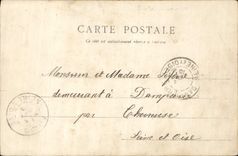 CARTE POSTALE
Ce côté est exclusivement réservé à l'adresse
Monsieur et Madame
demeurant à Dampierre
par Chevreuse
Seine et Oise